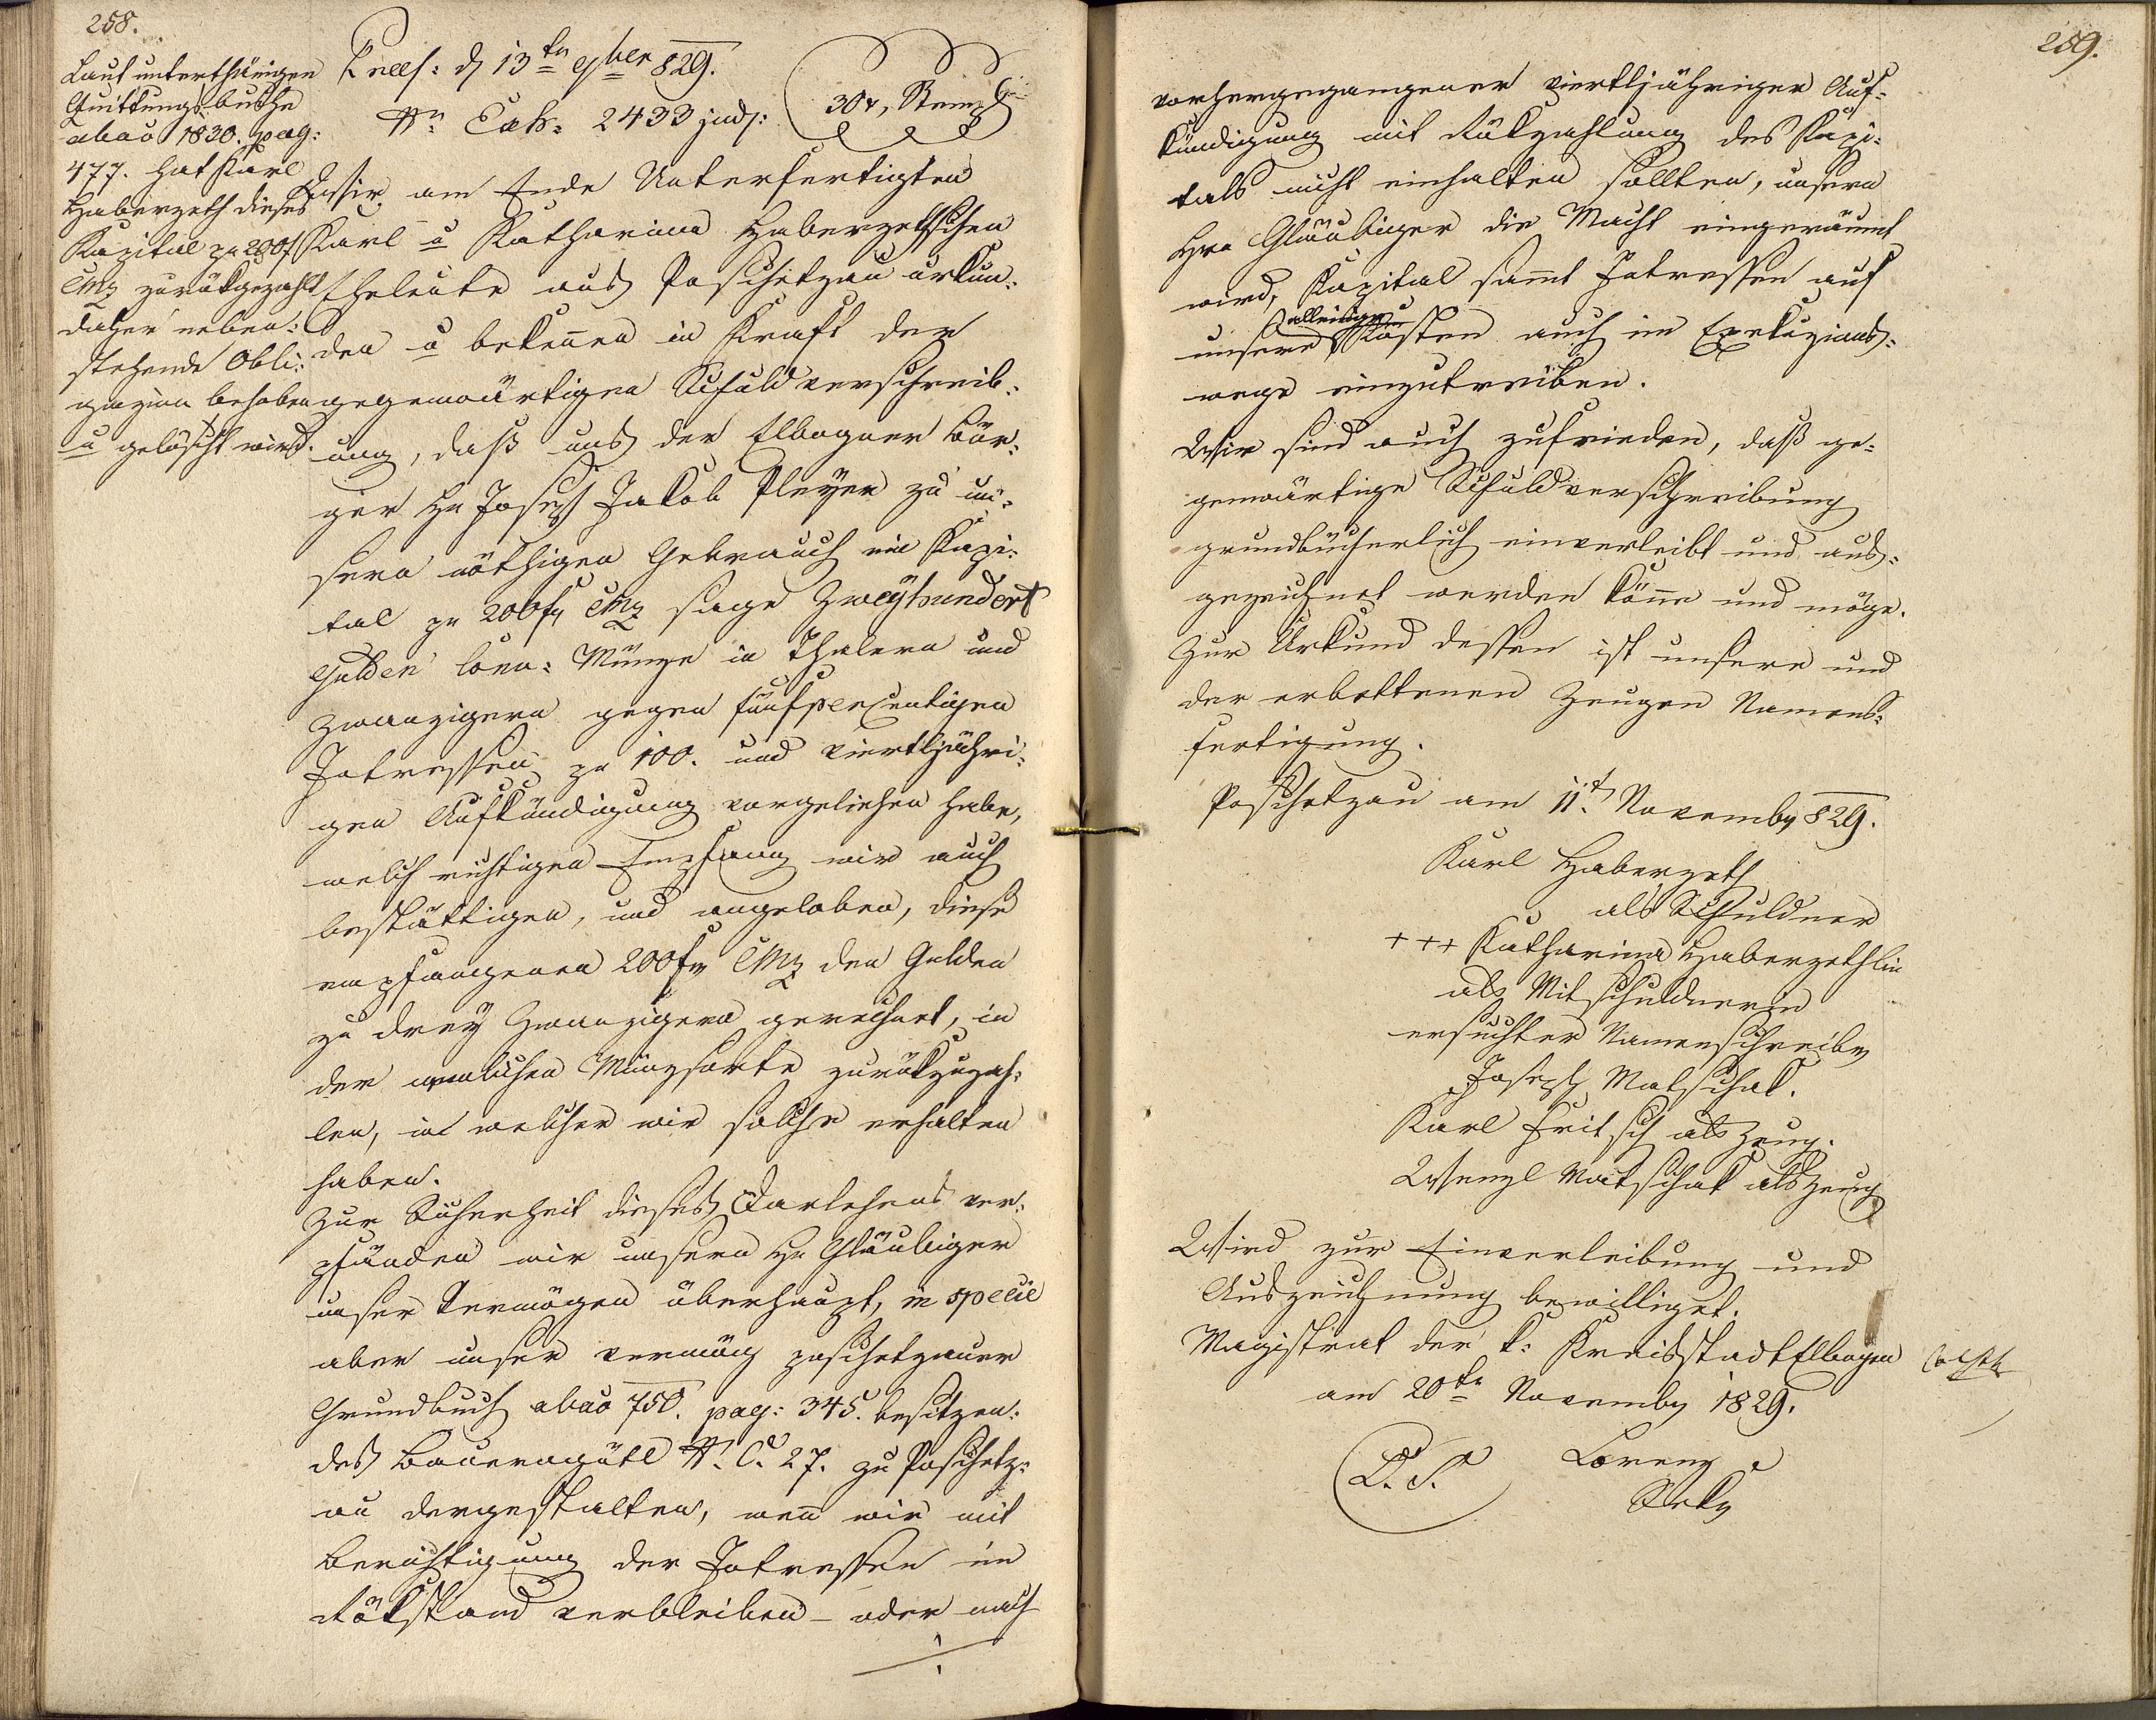 258.
Laut unterthänigen
Quittungsbuche
abao 1830. pag:
477. hat Karl
Haberzeth dieses
Kapital pr 200 f
CMz zurükgezahlt
daher neben:
stehende Obli:
gazion behoben
u gelöscht wird.
Praes: d 13tn 9ber 829.
Nr Exh: 2433 jud:
30 x, Stempl
Wir am Ende Unterfertigten
Karl u Katharina Haberzethschen
Eheleute aus Poschetzau urkun:
den u bekennen in Kraft der
gegenwärtigen Schuldverschreib:
ung, daß uns der Elbogner Bür:
ger Hr Joseph Jakob Pleyer zu un:
sern nöthigen Gebrauch ein Kapi:
tal pr 200 fr CMz sage Zweyhundert
Gulden Conv: Münze in Thalern und
Zwanzigern gegen fünfpercentigen
Intressen pr 100. und viertljähri:
gen Aufkündigung vorgeliehen habe,
welch richtigen Empfang wir auch
bestättigen, und angeloben, diese
empfangenen 200 fr CMz den Gulden
zu drey Zwanzigern gerechnet, in
der nemlichen Münzsorte zurükzuzah:
len, in welcher wir solche erhalten
haben.
Zur Sicherheit dieses Darlehens ver:
pfänden wir unsern Hr Gläubiger
unser Vermögen überhaupt, in specie
aber unser vermög poschetzauer
Grundbuch abao 750. pag: 345. besitzen:
des Bauerngütl N. C. 27. zu Poschetz:
au dergestalten, wenn wir mit
Berichtigung der Intressen im
Rükstand verbleiben – oder nach
259.
vorhergegangener viertljähriger Auf:
kündigung mit Rükzahlung des Kapi:
tals nicht einhalten sollten, unsern
Hrn Gläubiger die Macht eingeräumt
wird, Kapital sammt Intressen auf
alleinige
unsere Kosten auch im Exekuzions:
wege einzutreiben.
Wir sind auch zufrieden, daß ge:
genwärtige Schuldverschreibung
grundbücherlich einverleibt und aus:
gezeichnet werden könne und möge.
Zur Urkund dessen ist unsere und
der erbettenen Zeugen Namens:
fertigung.
Poschetzau am 11t November 829.
Karl Haberzeth
als Schuldner
+++ Katharina Haberzethlin
als Mitschuldnerin
ersuchter Namenschreiber
Joseph Matschak.
Karl Fritsch als Zeug.
Wenzl Matschak als Zeug
Wird zur Einverleibung und
Auszeichnung bewilliget.
Magistrat der k: Kreisstadt Elbogen
am 20te November 1829.
L. S.
Lorenz
Sekr